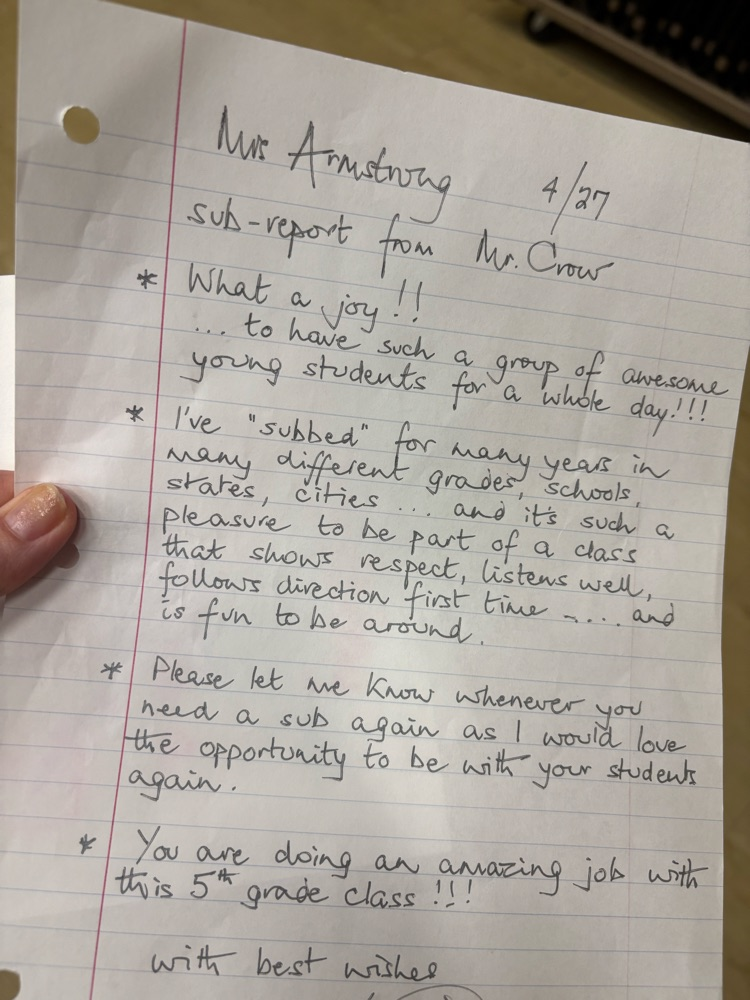 Mrs Armstrong 4/27
sub-report from Mr. Crow
* What a joy!!
... to have such a group of awesome
young students for a whole day!!!
* I've "subbed" for many years in
many different grades, schools,
states, cities ... and it's such a
pleasure to be part of a class
that shows respect, listens well,
follows direction first time ..... and
is fun to be around.
* Please let me know whenever you
need a sub again as I would love
the opportunity to be with your students
again.
* You are doing an amazing job with
this 5th grade class !!!
with best wishes